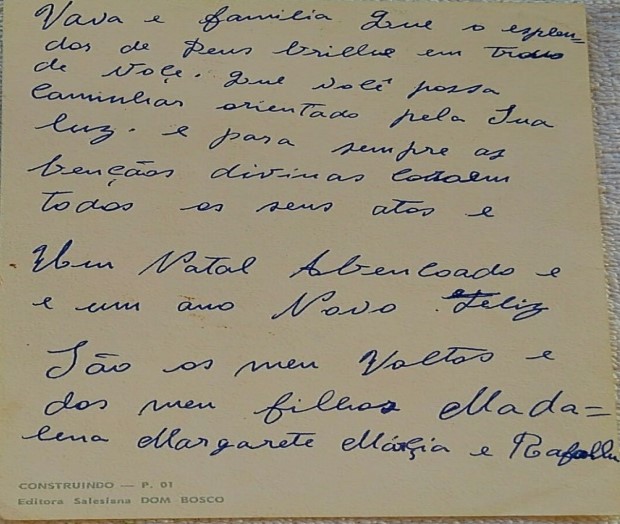 Vava e familia Que o esplen-
dor de Deus brilhe em torno
de você. Que você possa
Caminhar orientado pela Sua
luz. e para sempre as
bençãos divinas coroem
todos os seus atos e
Um Natal Abencoado e
e um ano Novo Feliz
São os meu Voltos e
dos meu filhos Mada=
lena Margarete Márcia e Rafaelle
CONSTRUINDO — P. 01
Editora Salesiana DOM BOSCO